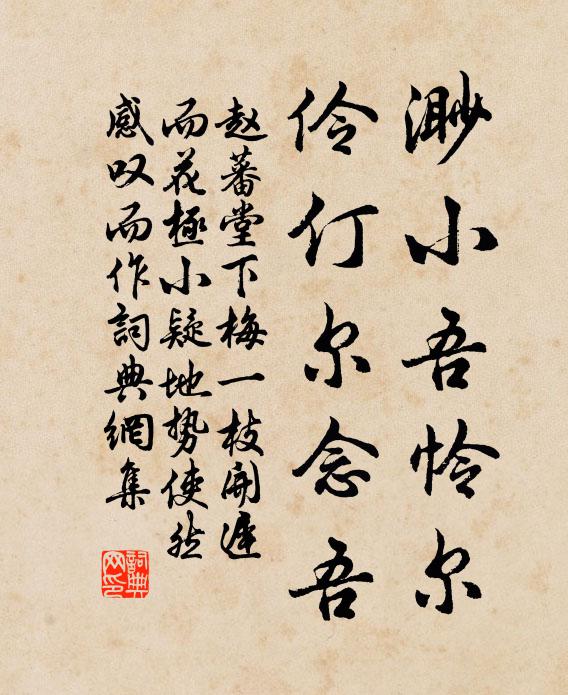 渺小吾怜尔
伶仃尔念吾
赵蕃堂下梅一枝开遲
而花極小疑地势使然
感叹而作詞典網集
詞典网印